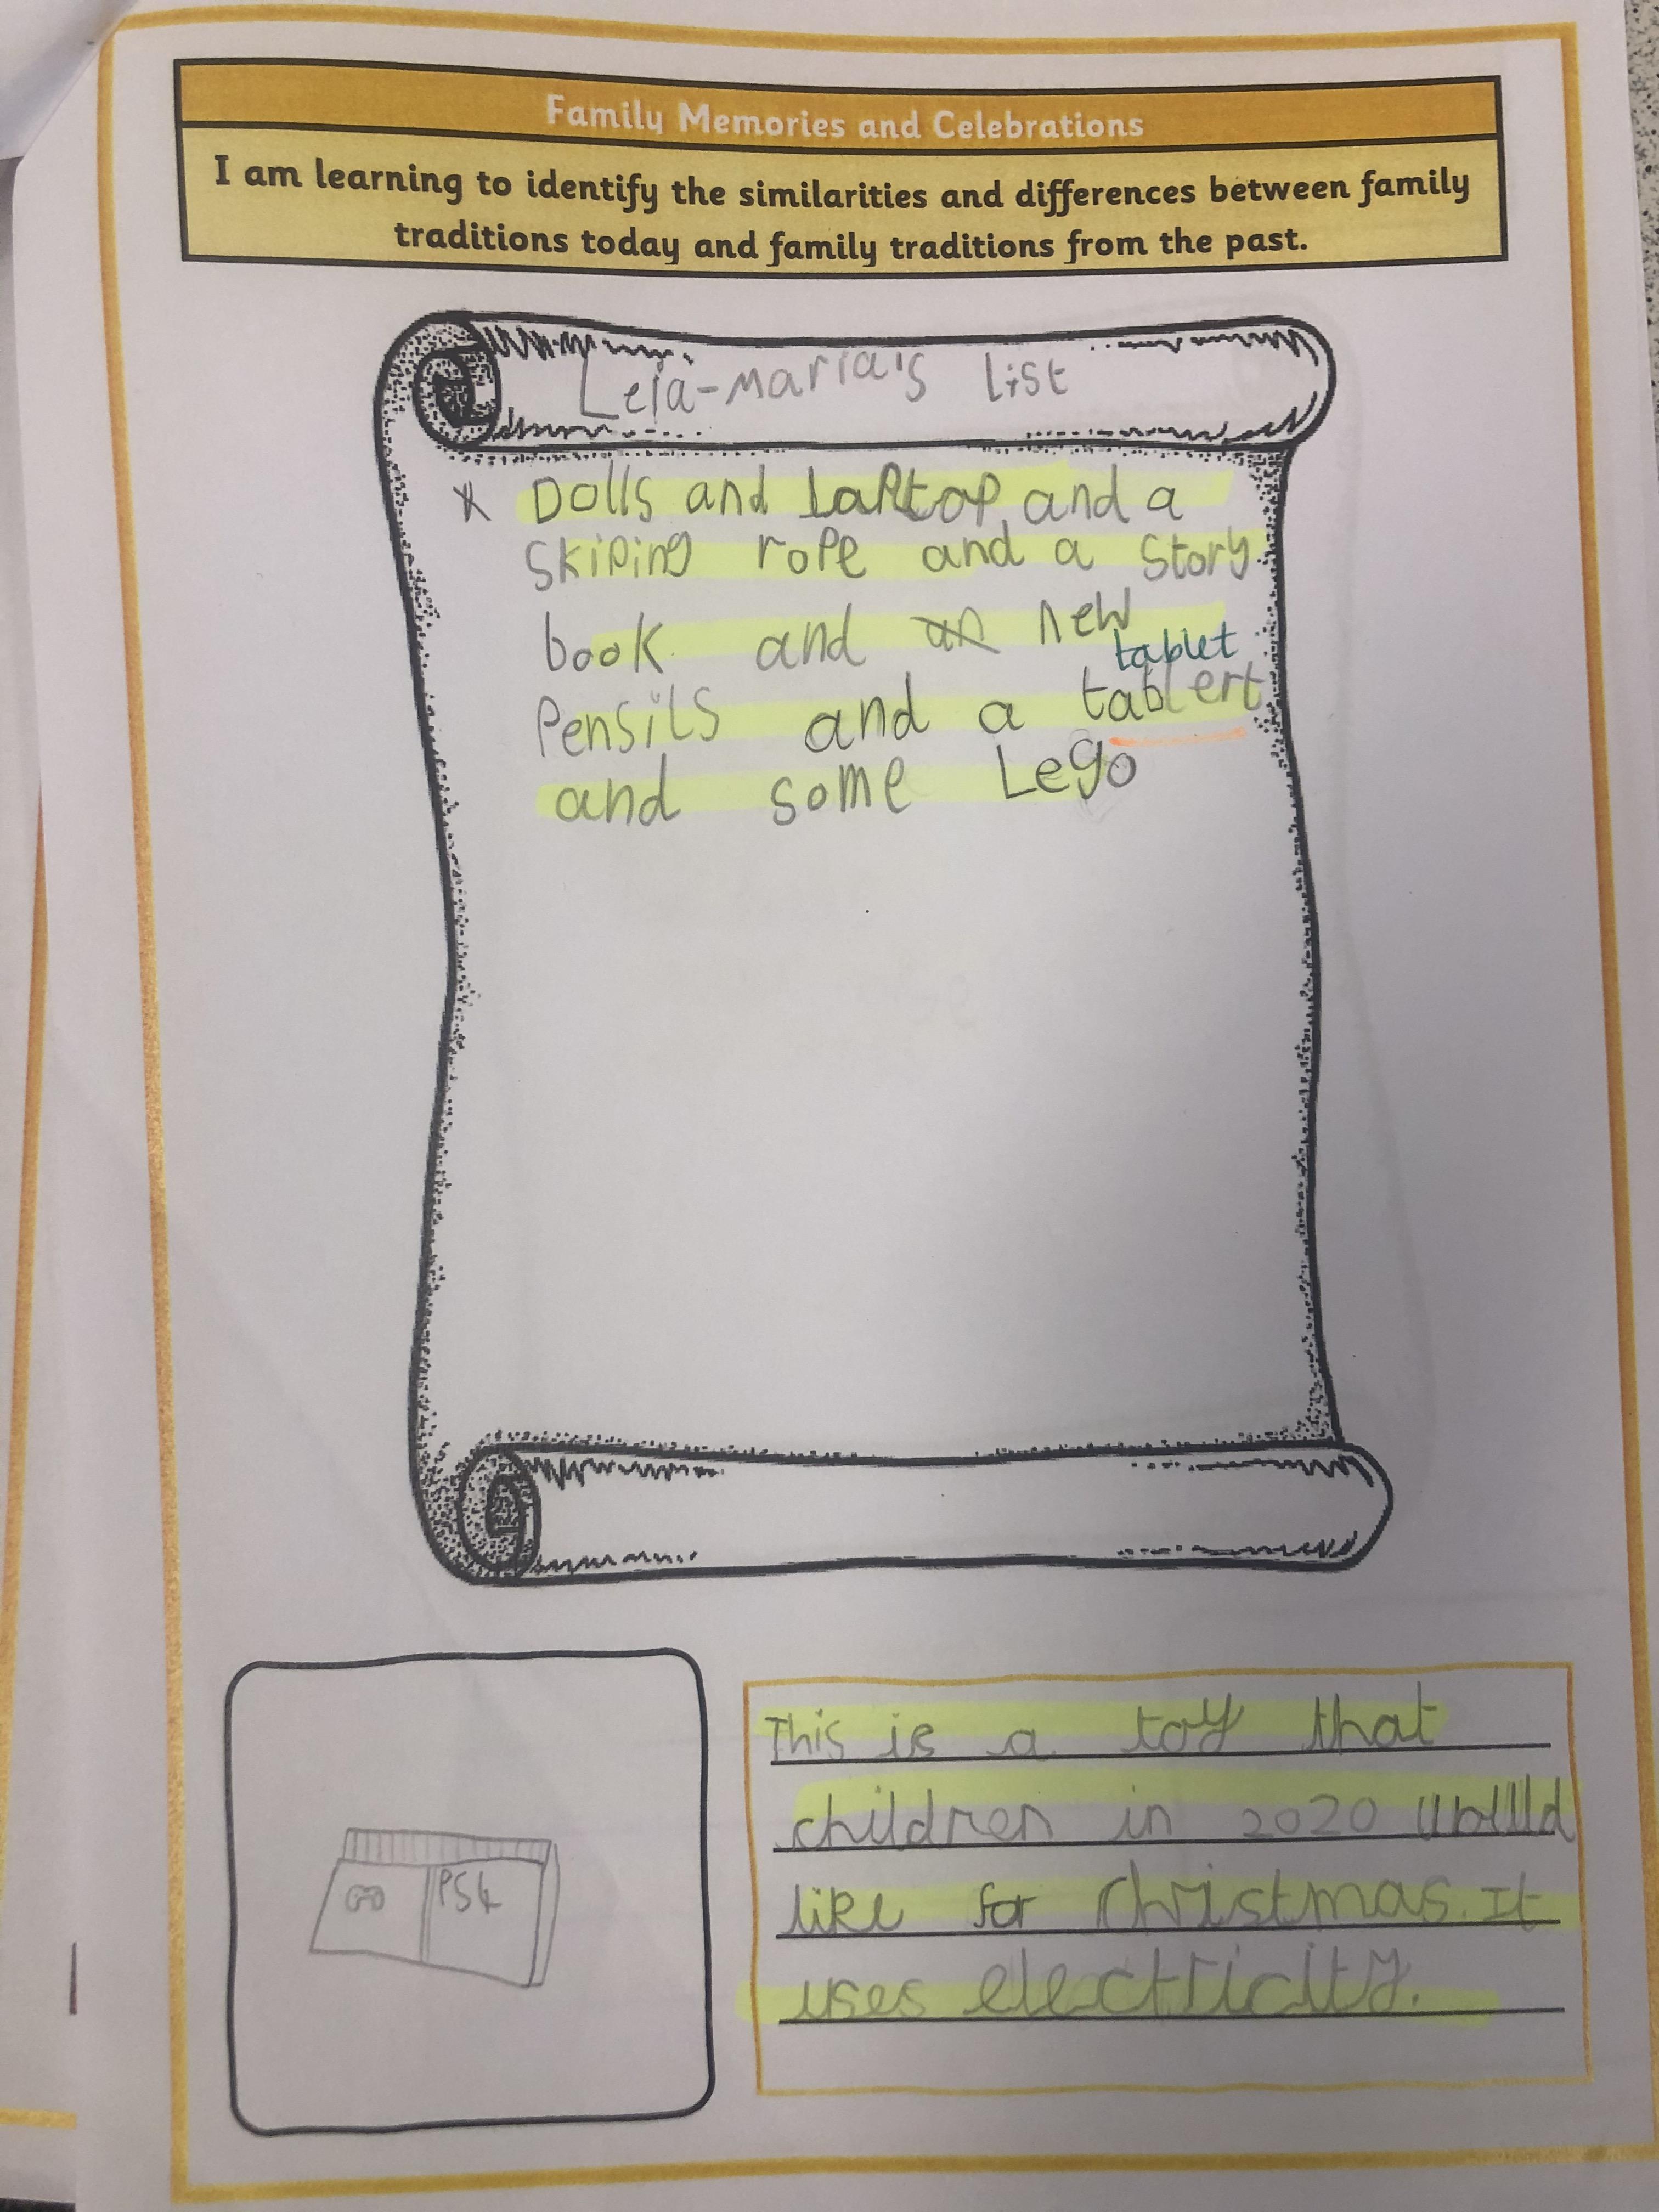 Family Memories and Celebrations
I am learning to identify the similarities and differences between family
traditions today and family traditions from the past.
Leia-maria's List
* Dolls and laptop and a
skiping rope and a story
book and an new
tablet
Pensils and a tablert
and some Lego
PS4
This is a toy that
children in 2020 would
like for Christmas. It
uses electricity.